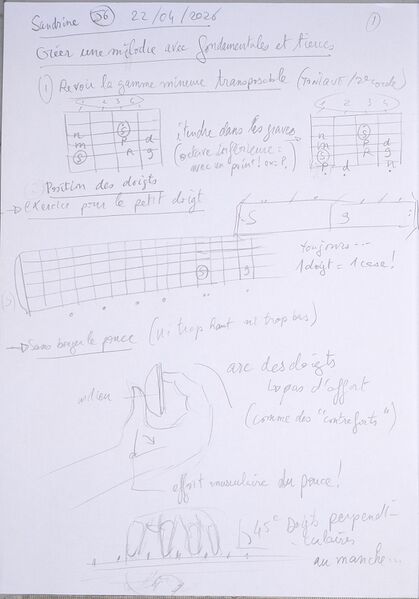 Sandrine 56 22/04/2026 1
Créer une mélodie avec fondamentales et tierces
1 Revoir la gamme mineure transposable (TONIQUE / 2e corde)
1 2 3 4
1 2 3 4
S
n P d
m R g
S
étendre dans les graves
(octave inférieure =
avec un point! ex: P.
S
n P d
m R g
S
P d n
Position des doigts
→ Exercice pour le petit doigt
S g
S g
Toujours...
1 doigt = 1 case!
→ Sans bouger le pouce (ni trop haut ni trop bas)
milieu
arc des doigts
↳ pas d'effort
(comme des "contreforts")
effort musculaire du pouce!
45° Doigts perpendi-
culaires
au manche...